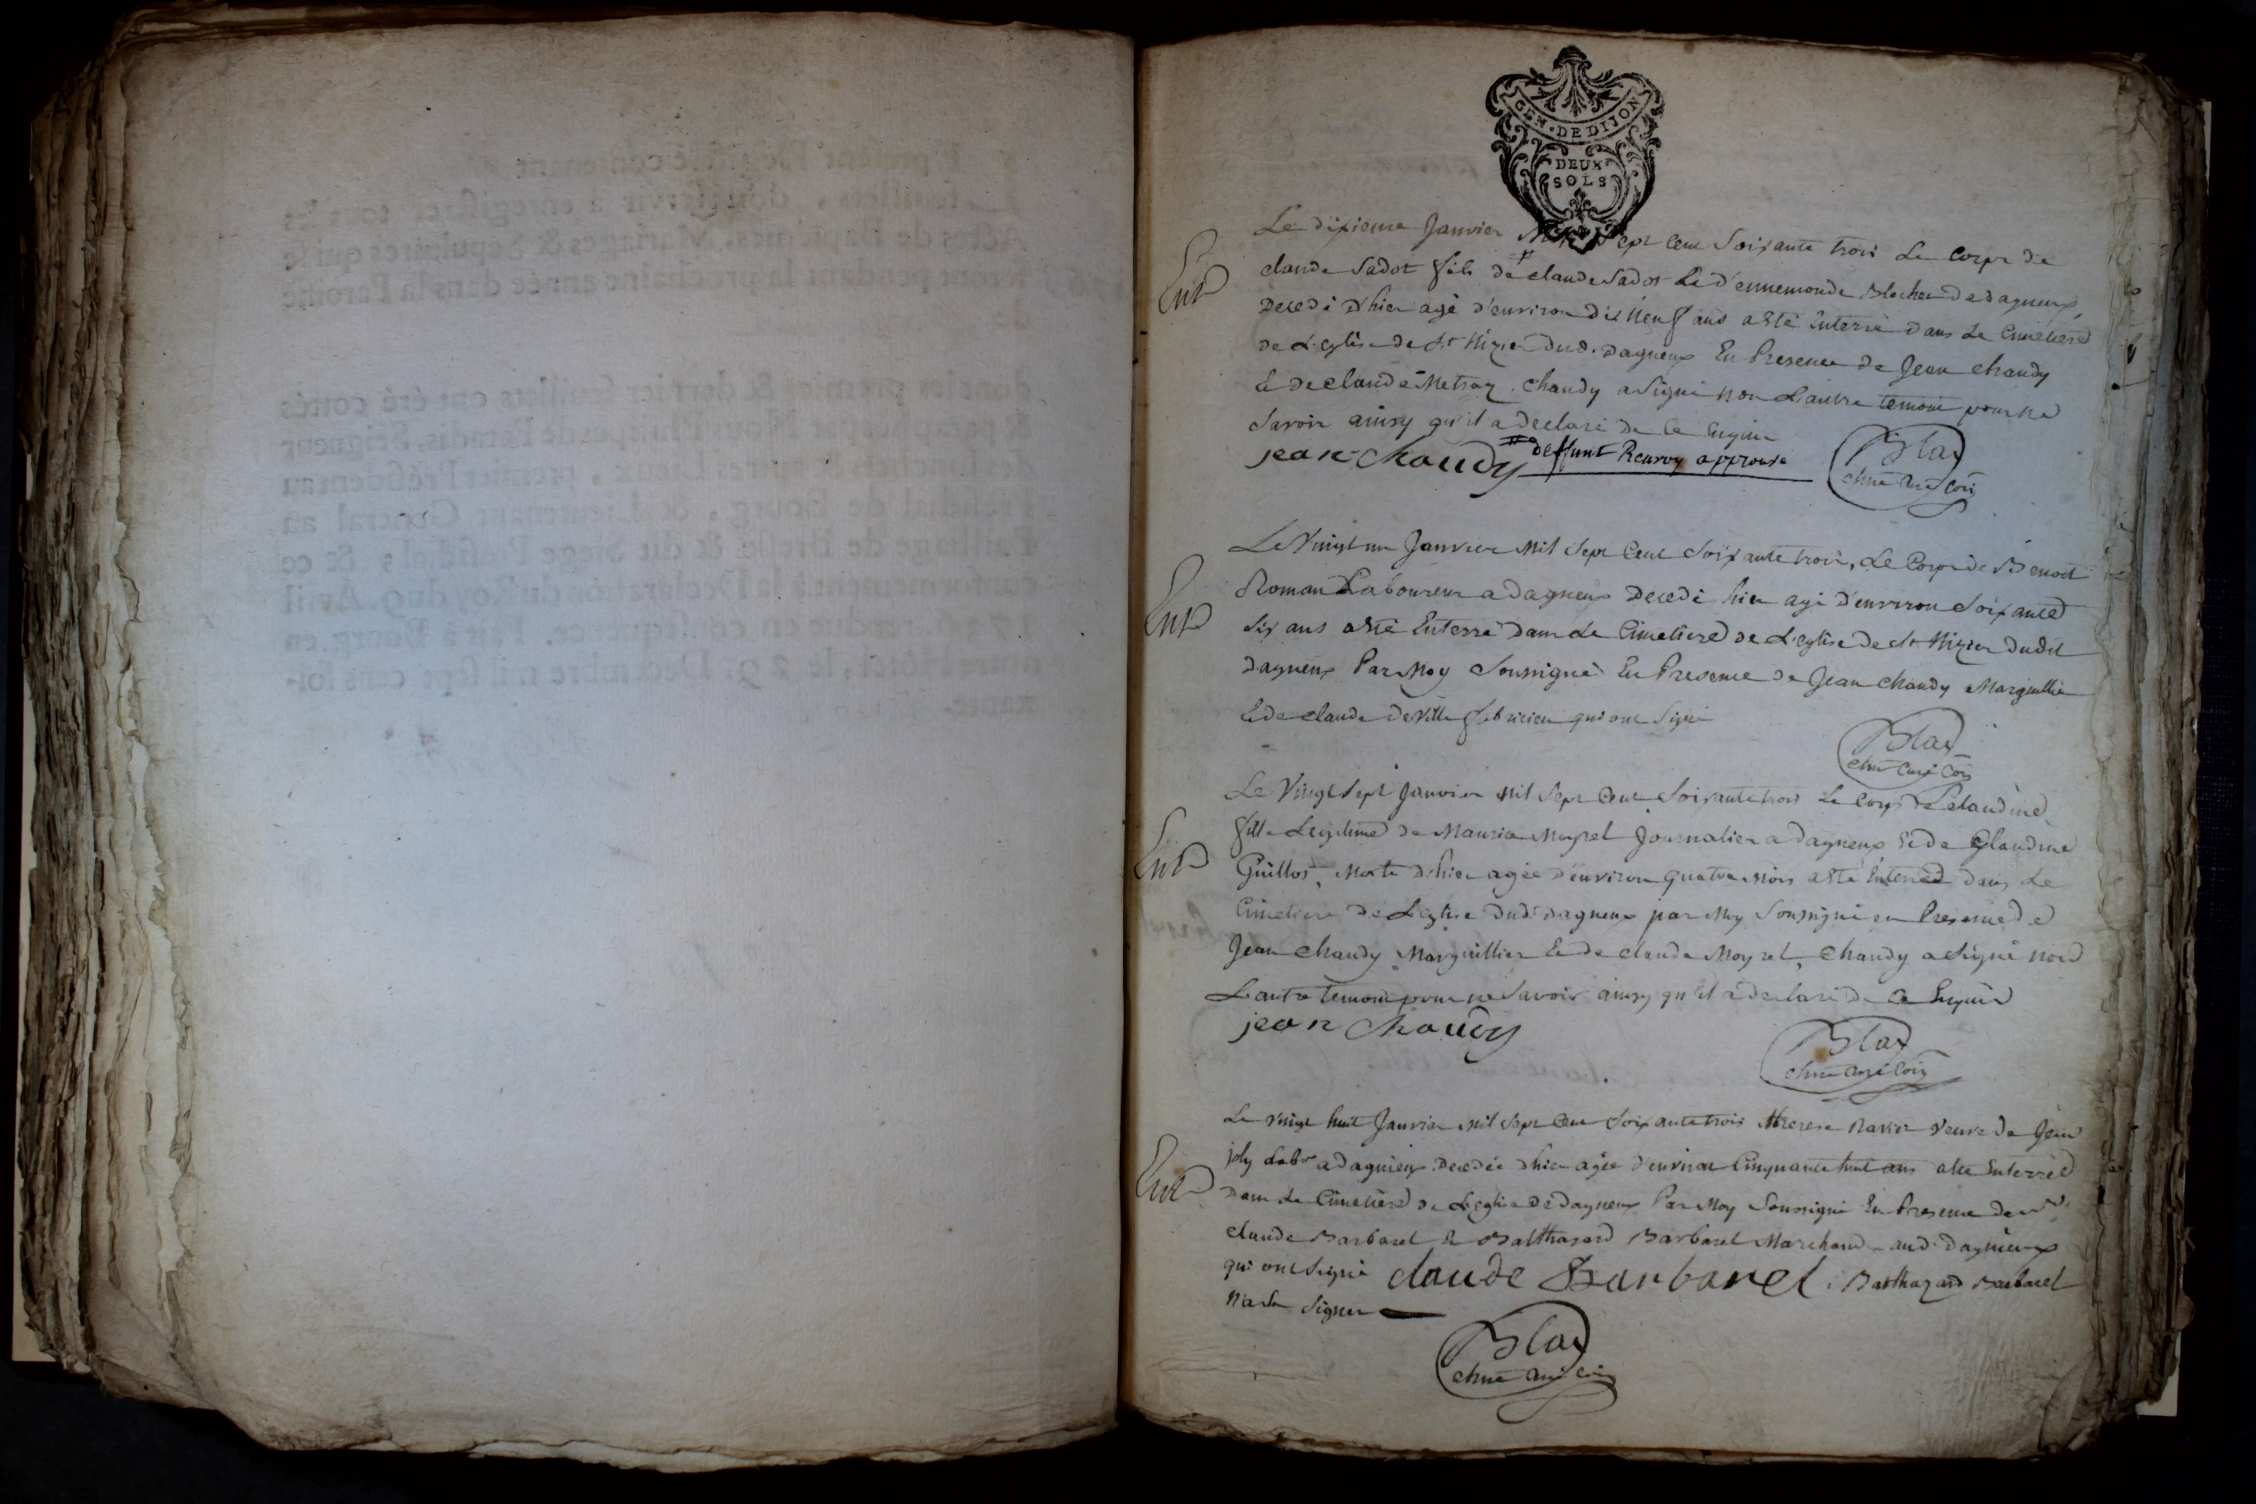 GEN · DE DIJON
DEUX
SOLS
Le dixieme Janvier Mil Sept Cent Soixante trois Le Corps de
Ent
claude Sadot fils de # claude Sadot Et d'ennemonde Blochet de dagneux
Decedé D'hier agé d'environ dix neuf ans a Eté Enterré Dans Le Cimetiere
de L'eglise de St Nizier dud. dagneux En Presence de Jean chaudy
Et de claude Metray. chaudy a Signé non L'autre temoin pour ne
Savoir ainsy qu'il a Declaré de Ce Enquis
jean chaudy
# deffunt Renvoy approuvé
Blax
curé
Le Vingt un Janvier Mil Sept Cent Soixante trois, Le Corps de Benoit
Ent
Roman Laboureur a Dagneux Decedé hier agé d'environ Soixante
Six ans a Eté Enterré Dans Le Cimetiere de L'eglise de St Nizier Dudit
dagneux Par Moy Soussigné En Presence de Jean chaudy Marguillier
Et de claude De Ville fabricien qui ont Signé
Blax
curé
Le Vingt Sept Janvier Mil Sept Cent Soixante trois Le Corps de Claudine
Ent
fille Legitime de Maurice Moyret Journalier a Dagneux Et de Claudine
Guillot, Morte D'hier agée d'environ quatre Mois a Eté Enterré Dans Le
Cimetiere de L'eglise Dud. Dagneux par Moy Soussigné en Presence de
Jean chaudy Marguillier Et de claude Moyret, chaudy a Signé non
L'autre temoin pour ne Savoir ainsy qu'il a declaré de Ce Enquis
jean chaudy
Blax
curé
Le Vingt huit Janvier Mil Sept Cent Soixante trois Therese Ravier Veuve de Jean
Ent
joly Labr a dagneux Decedée D'hier agée d'environ Cinquante huit ans a Eté Enterré
Dans Le Cimetiere de L'eglise De Dagneux Par Moy Soussigné En Presence de
claude Barbaret Et Balthazard Barbaret Marchand aud. Dagneux
qui ont Signé claude Barbaret. Balthazard Barbaret
N'a Su Signer
Blax
curé